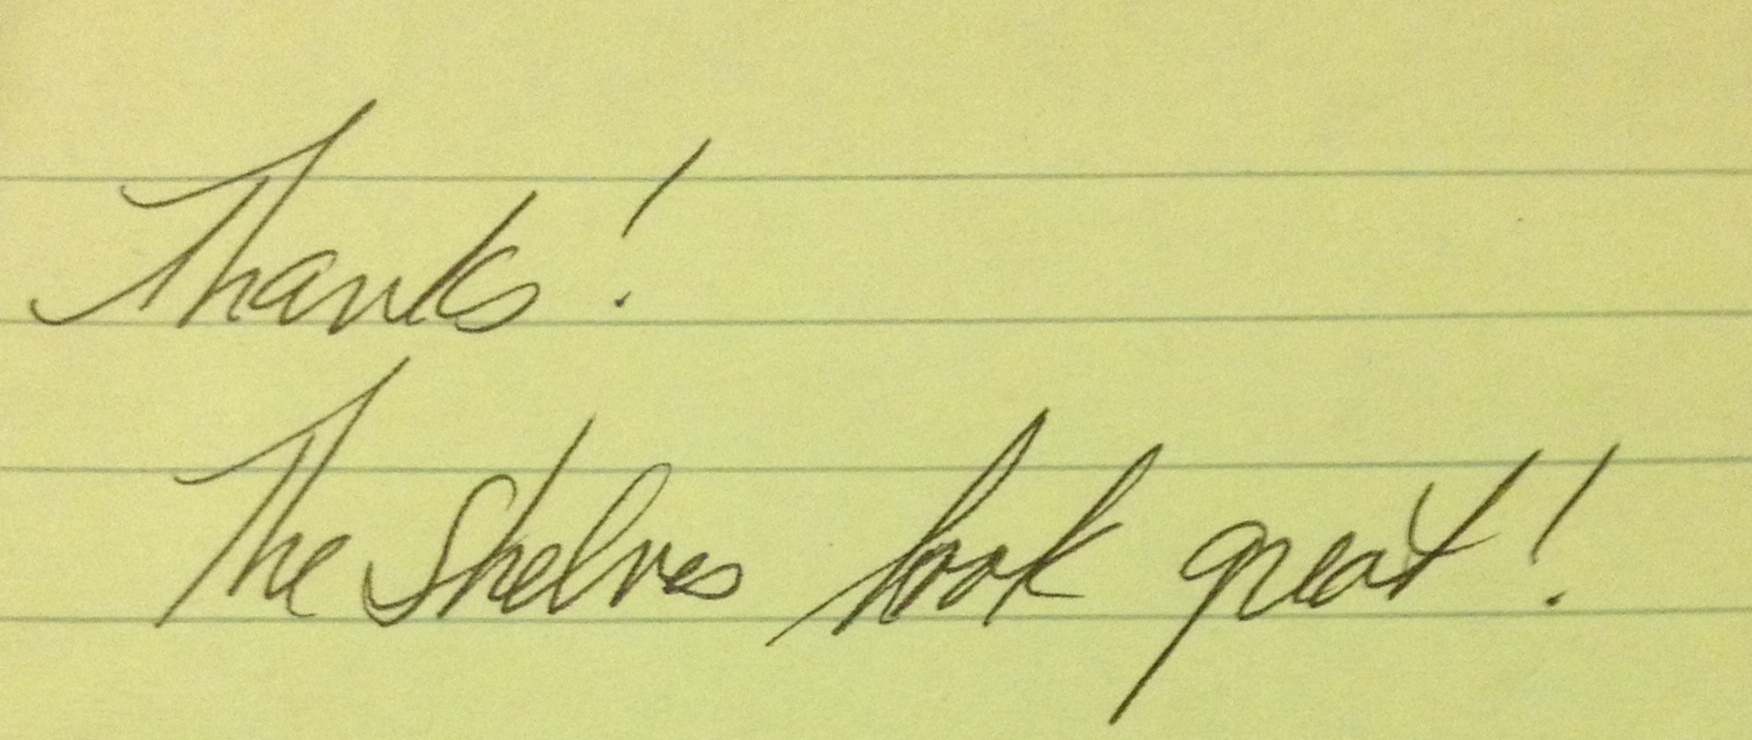 Thanks!
The Shelves look great!